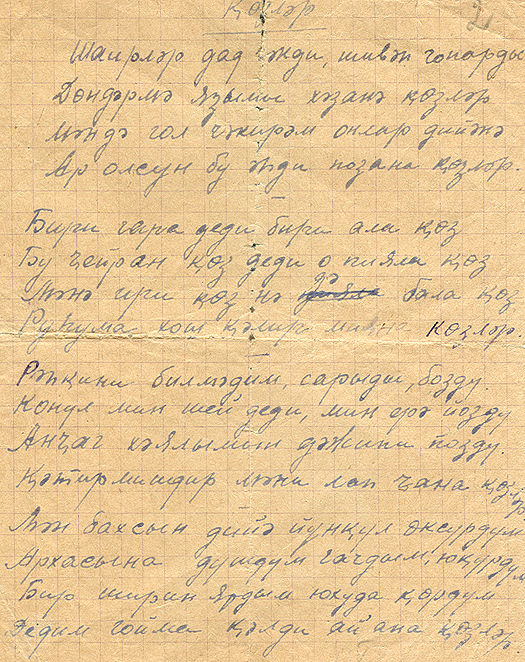 Қөзләр
2
Шаирләр дад әкди, шивән гопарды
Дөндәрмә язымы хәзанә қөзләр
Мәндә гол чәкирәм онлар дийәнә
Ар олсун бу әһди позана қөзләр.
Бири гара деди бири ала қөз
Бу ҹейран қөз деди о пияла қөз
Мәнә ири қөз нә дә бала қөз
Руһума хош қәлир мияна көзләр.
Рәнкини билмәдим, сарыды, бозду.
Көнүл мин шей деди, мин ерә йозду
Анҹаг хәялымын позду.
Қәтирмишдир мәни лап ҹана қөзләр
Мән бахсын дийә йүнқүл өксүрдүм
Архасына дүшдүм гачдым, юқүрдүм
Бир ширин ярдым юхуда қөрдүм
Дедим гойма қәлди ай ана қөзләр